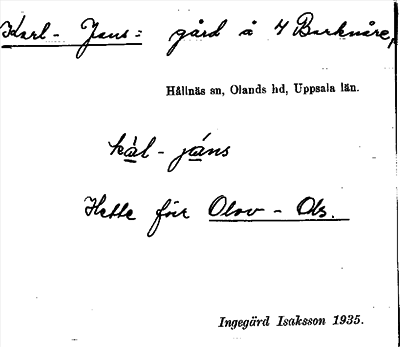 Karl-Jans: gård å 4 Barknåre,
Hållnäs sn, Olands hd, Uppsala län.
kàl-jáns
Hette förr Olov-Ols.
Ingegärd Isaksson 1935.